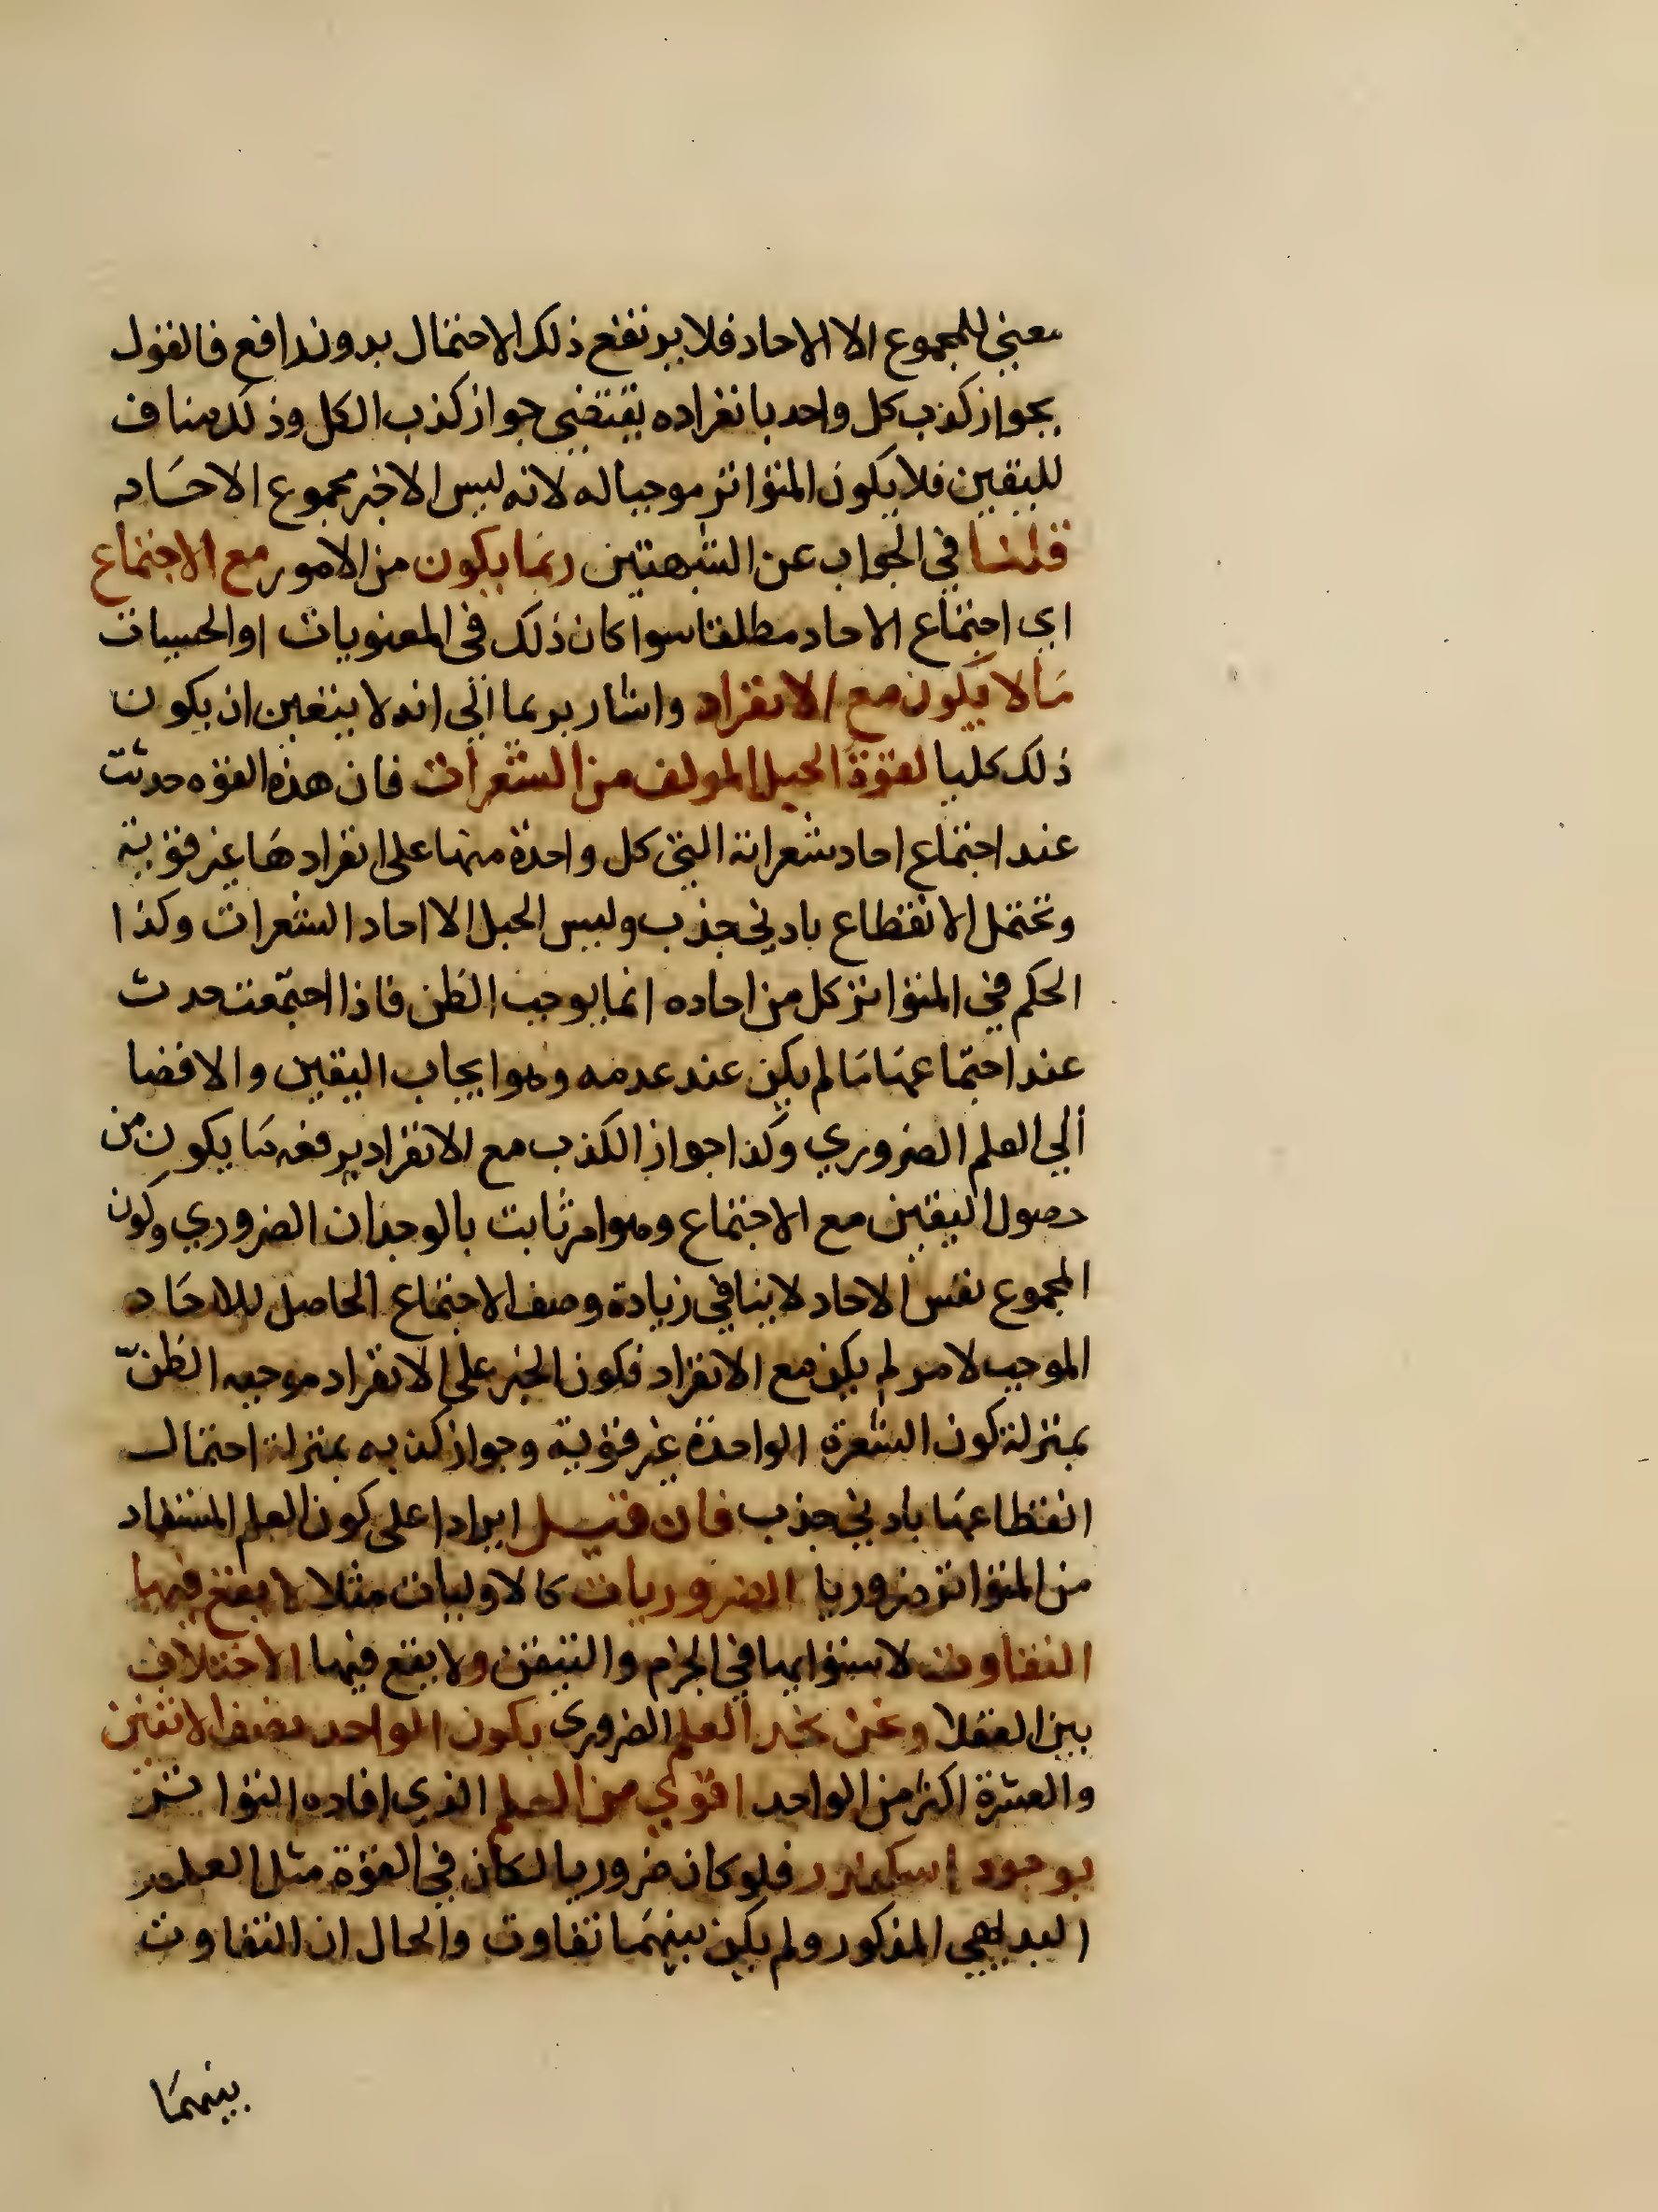 معني للمجموع الا الاحاد فلا يرتفع ذلك الاحتمال بدون رافع فالقول
بجواز كذب كل واحد بانفراده يقتضي جواز كذب الكل وذلك مناف
لليقين فلا يكون المتواتر موجبا له لانه ليس الا خبر مجموع الاحاد
قلنا في الجواب عن الشبهتين ربما يكون من الامور مع الاجتماع
اي اجتماع الاحاد مطلقا سوا كان ذلك في المعنويات او الحسيات
ما لا يكون مع الانفراد واشار بربما الي انه لا يتعين ان يكون
ذلك كليا لقوة الحبل المولف من الشعرات فان هذه القوه حدثت
عند اجتماع احاد شعراته التي كل واحدة منها على انفرادها غير قوية
وتحتمل الانقطاع بادني جذب وليس الحبل الا احاد الشعرات وكذا
الحكم في المتواتر كل من احاده انما يوجب الظن فاذا اجتمعت حدث
عند اجتماعها ما لم يكن عند عدمه وهو ايجاب اليقين والافضا
الي العلم الضروري وكذا جواز الكذب مع الانفراد يرفعه ما يكون من
حصول اليقين مع الاجتماع وهو امر ثابت بالوجدان الضروري وكون
المجموع نفس الاحاد لا ينافي زيادة وصف الاجتماع الحاصل للاحاد
الموجب لامر لم يكن مع الانفراد فكون الخبر على الانفراد موجبه الظن
بمنزلة كون الشعرة الواحدة غير قوية وجواز كذبه بمنزلة احتمال
انقطاعها بادني جذب فان قيل ايرادا على كون العلم المستفاد
من المتواتر ضروريا الضروريات كالاوليات مثلا لا يقع فيها
التفاوت لاستوايها في الجزم والتيقن ولا يقع فيها الاختلاف
بين العقلا ونحن نجد العلم الضروري بكون الواحد نصف الاثنين
والعشرة اكثر من الواحد اقوي من العلم الذي افاده التواتر
بوجود اسكندر فلو كان ضروريا لكان في القوة مثل العلم
البديهي المذكور ولم يكن بينهما تفاوت والحال ان التفاوت
بينهما